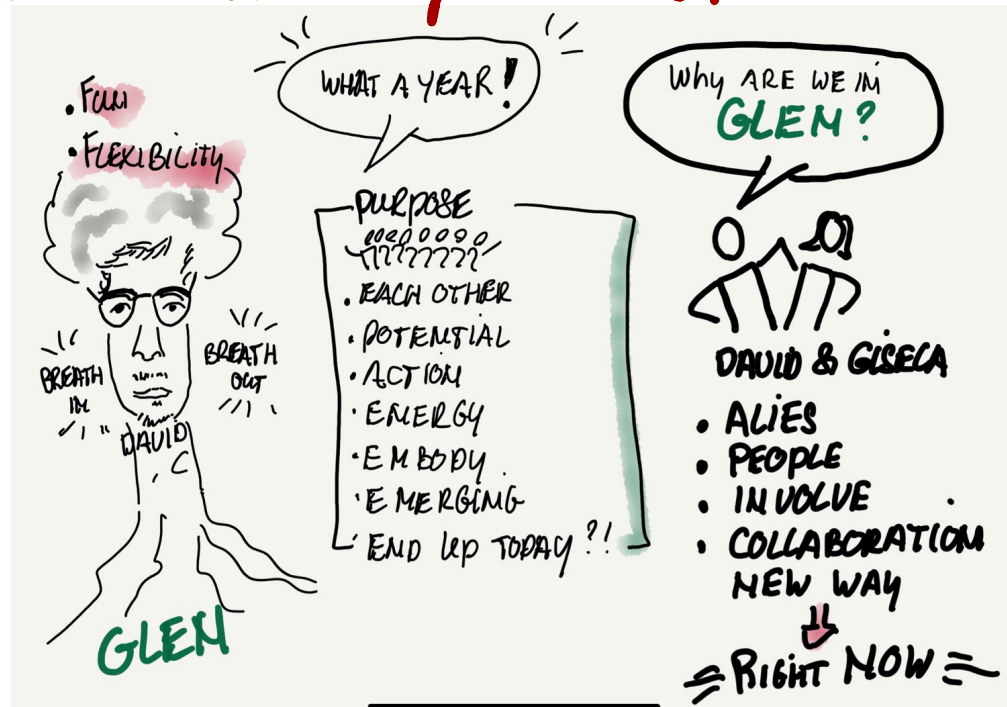 • FUN
• FLEXIBILITY
BREATH
IN
BREATH
OUT
DAVID
C
GLEN
WHAT A YEAR!
PURPOSE
• EACH OTHER
• POTENTIAL
• ACTION
• ENERGY
• EMBODY
• EMERGING
• END UP TODAY ?!
WHY ARE WE IN
GLEN?
DAVID & GISELA
• ALIES
• PEOPLE
• INVOLVE
• COLLABORATION
NEW WAY
RIGHT NOW